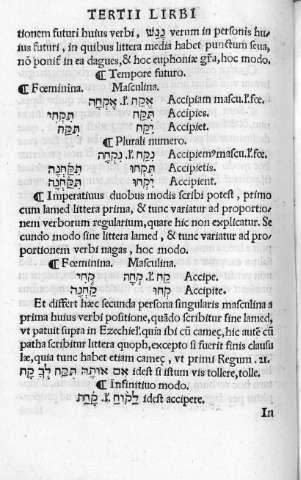 TERTII LIRBI
tionem futuri huius verbi, נָגַשׁ verum in personis hu/
ius futuri, in quibus littera media habet punctum seua,
nõ ponif in ea dagues, & hoc euphoniæ gr̃a, hoc modo.
¶ Tempore futuro.
¶ Fœminina. Masculina.
אֶקַּח .ł. אֶקְחָה Accipiam mascu.ł.fœ.
תִּקְחִי תִּקַּח Accipies.
תִּקַּח יִקַּח Accipiet.
¶ Plurali numero.
נִקַּח .ł. נִקְחָה Accipiem⁹ mascu.ł.fœ.
תִּקַּחְנָה תִּקְחוּ Accipietis.
תִּקַּחְנָה יִקְחוּ Accipient.
¶ Imperatiuus duobus modis scribi potest, primo
cum lamed littera prima, & tunc variatur ad proportio
nem verborum regularium, quare hic non explicatur. Se
cundo modo sine littera lamed, & tunc variatur ad pro
portionem verbi nagas, hoc modo.
¶ Fœminina. Masculina.
קְחִי קַח .ł. קְחָה Accipe.
קַחְנָה קְחוּ Accipite.
Et differt hæc secunda persona singularis masculina a
prima huius verbi positione, quãdo scribitur sine lamed,
vt patuit supra in Ezechief. quia ibi cũ cameç, hic autē cũ
patha scribitur littera quoph, excepto si fuerit finis clausu
læ, quia tunc habet etiam cameç, vt primi Regum . 21.
אִם אוֹתָהּ תִּקַּח לְךָ קָח idest si istum vis tollere, tolle.
¶ Infinitiuo modo.
לָקוֹחַ .ł. קַחַת idest accipere.
In